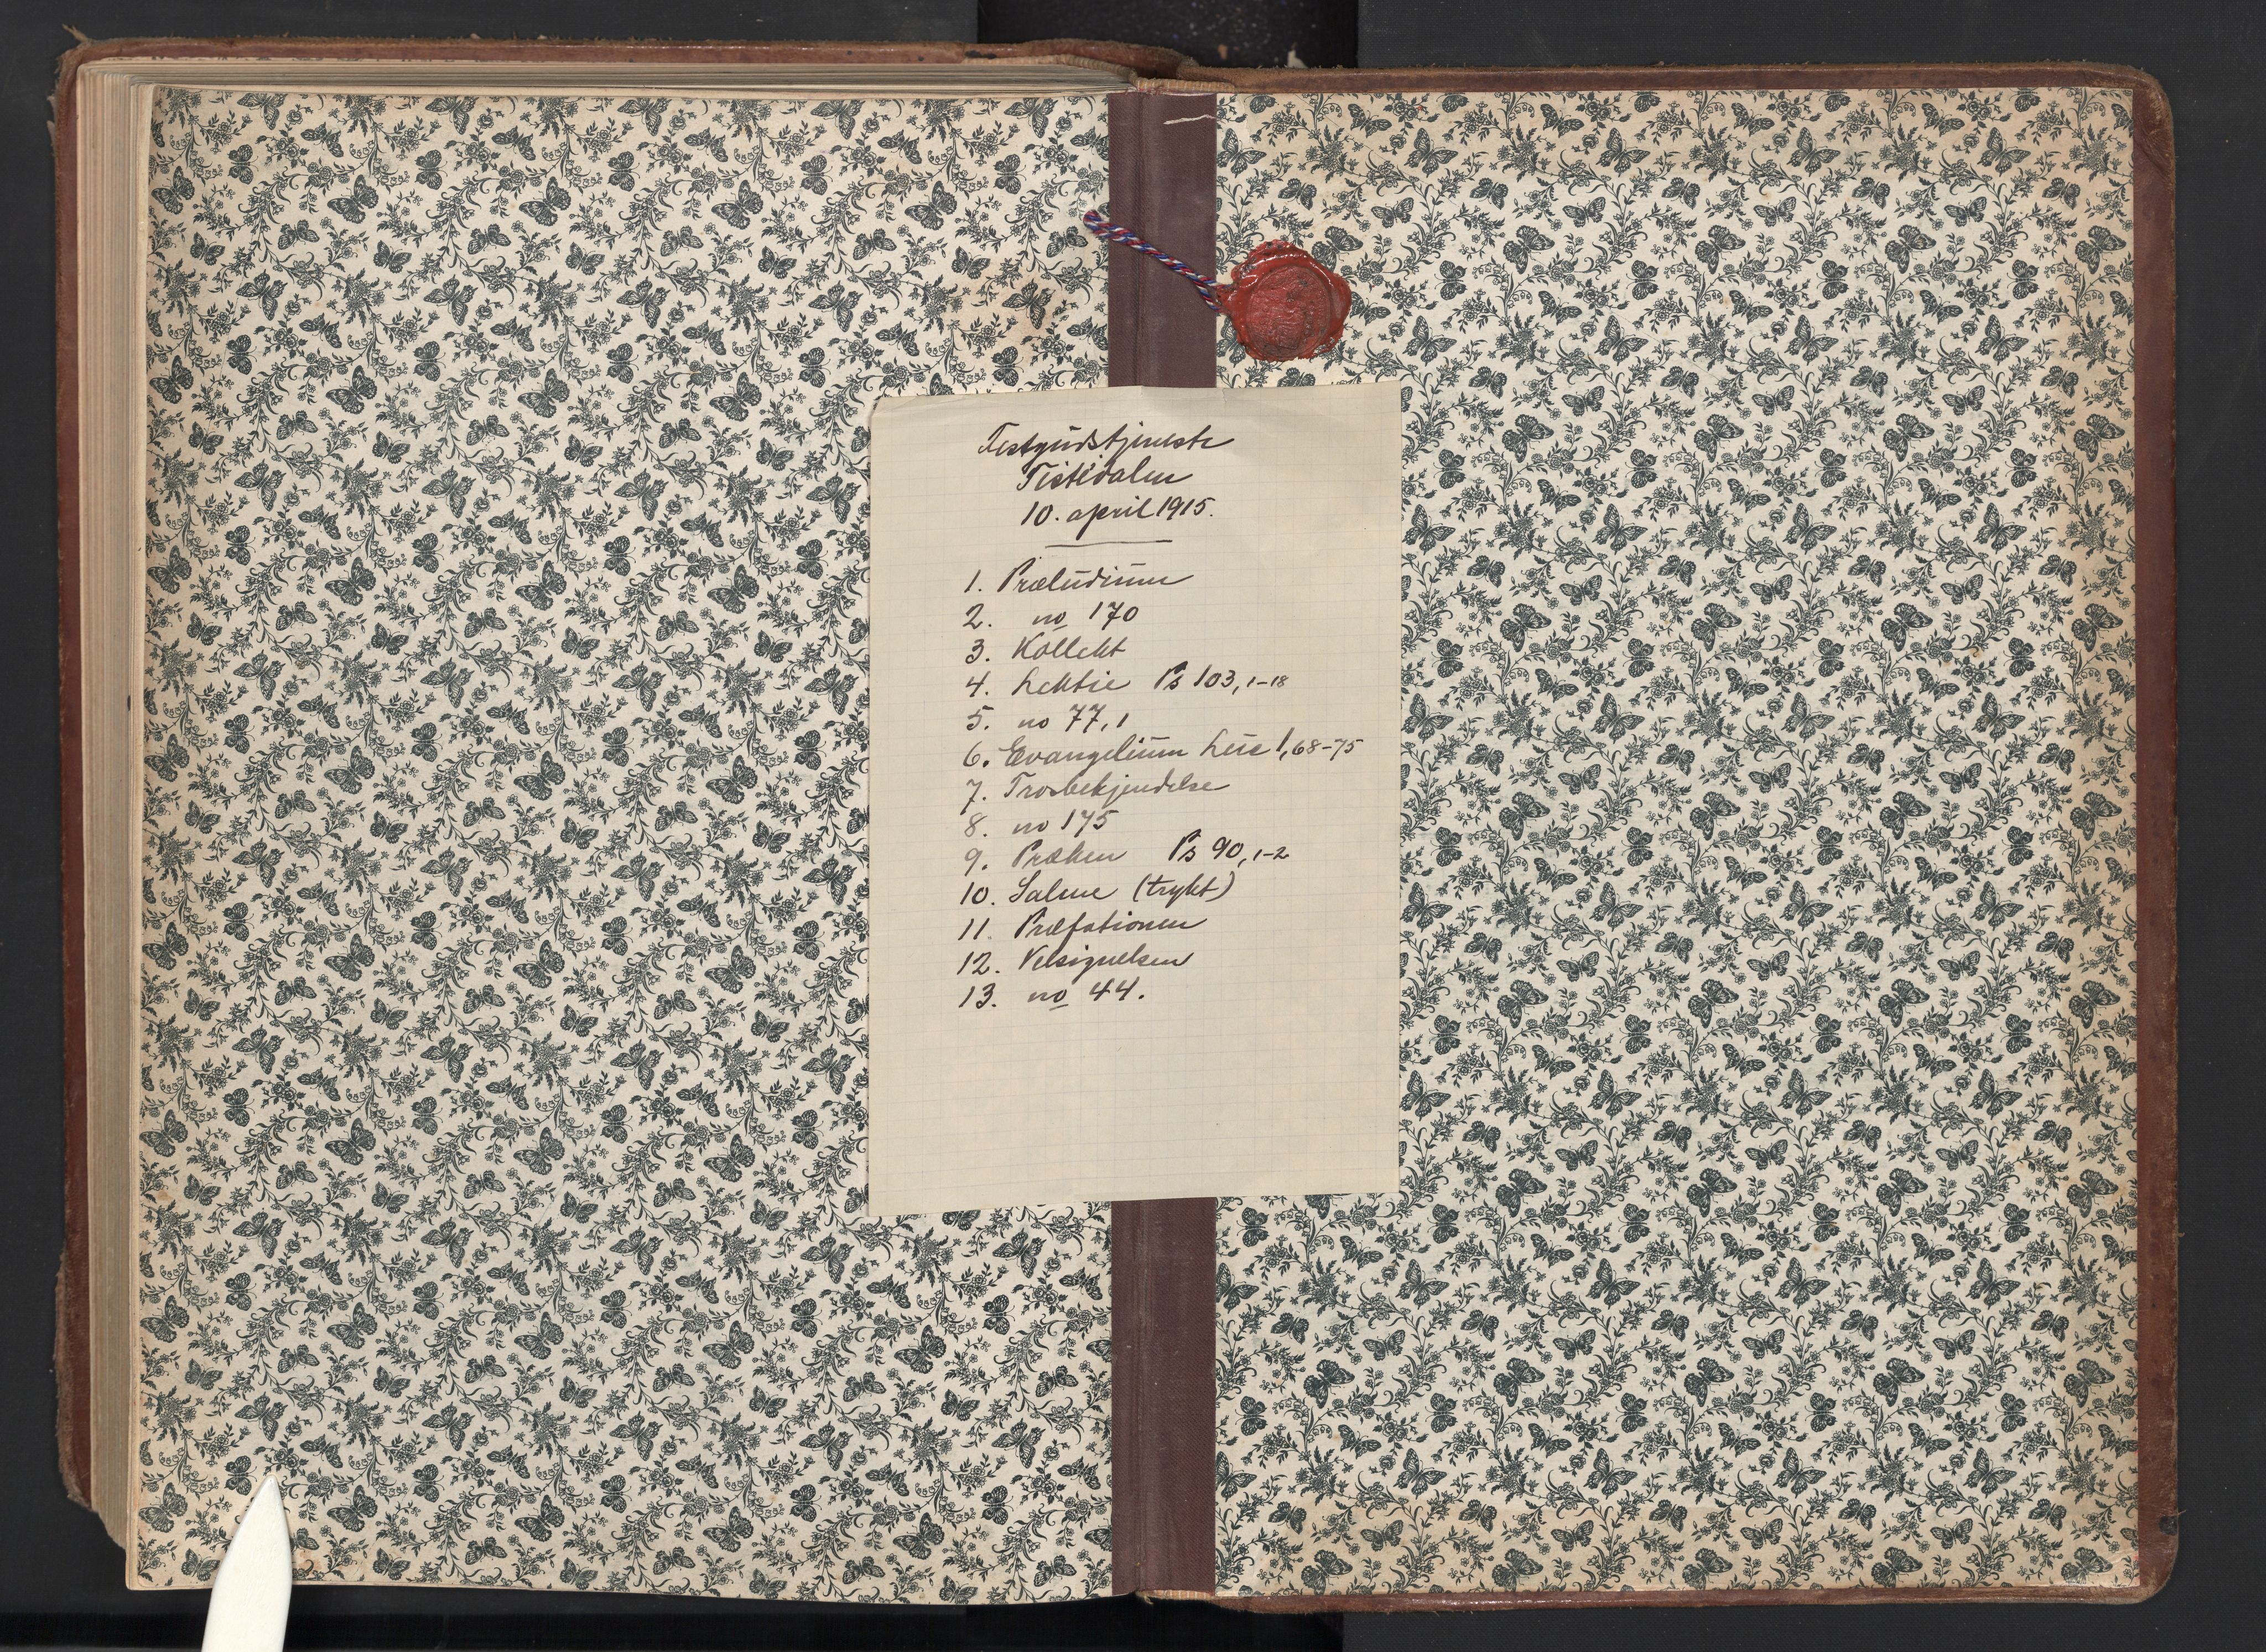 Festgudstjeneste
Tistedalen
10. april 1915.
1. Præludium
2. no 170
3. Kollekt
4. Lektie Ps 103, 1-18
5. no 77, 1
6. Evangelium Luc 1, 68-75
7. Trosbekjendelse
8. no 175
9. Præken Ps 90, 1-2
10. Salme (trykt)
11. Præfationen
12. Velsignelsen
13. no 44.